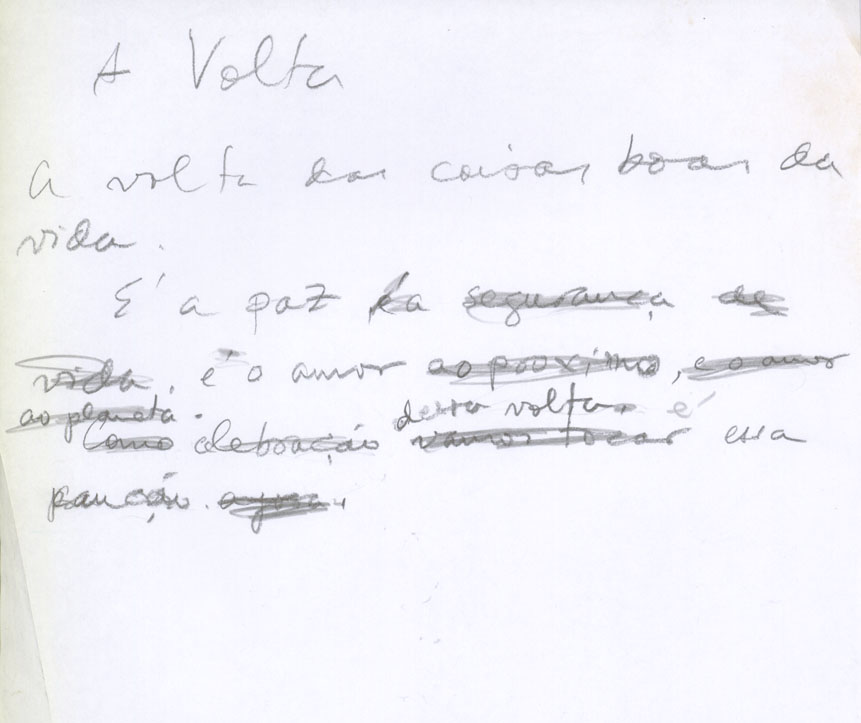 A Volta
A volta das coisas boas da
vida.
É a paz da segurança de
vida, é o amor ao próximo, e o amor
ao planeta.
dessa volta é
Como celebração vamos tocar essa
canção. agora.